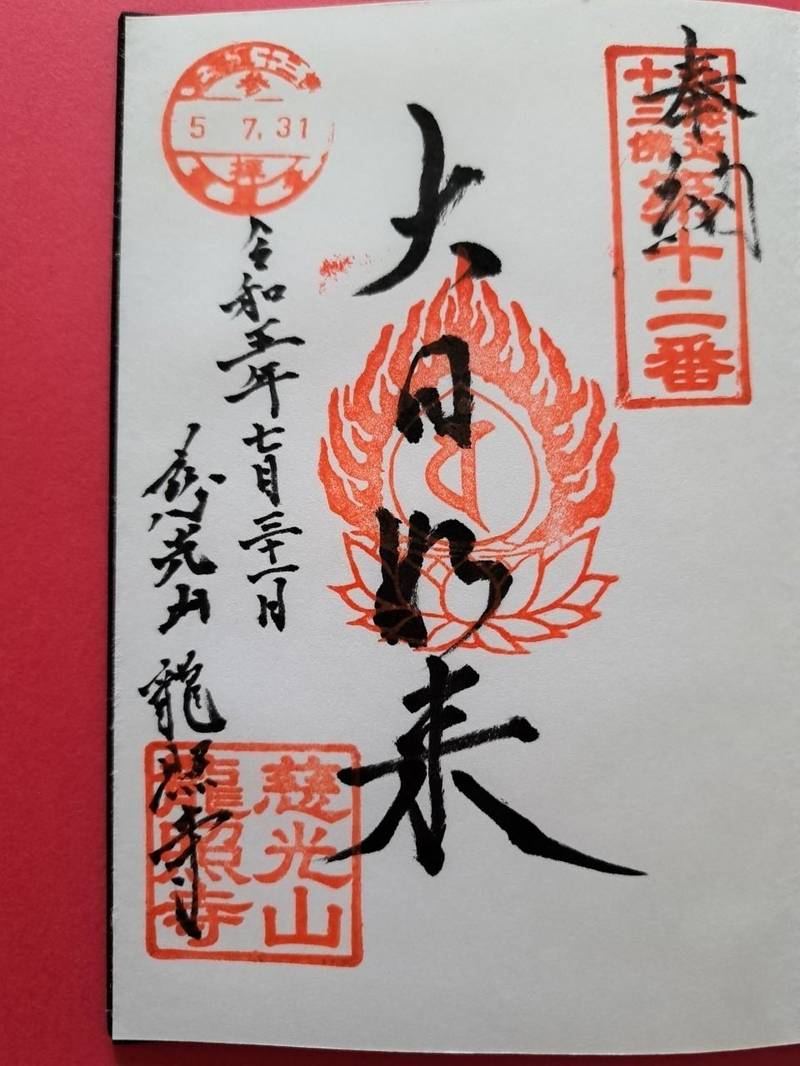 奉納
十三佛
第十二番
大日如来
参
5 7.31
拝
令和五年七月三十一日
慈光山 龍照寺
慈光山
龍照寺